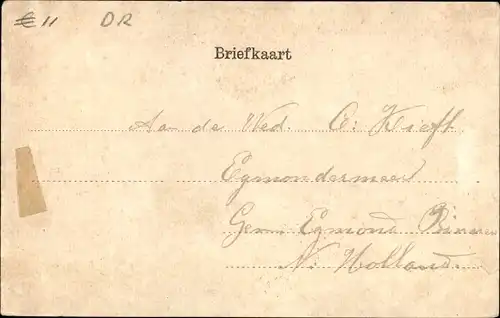 € 11 DR
Briefkaart
Aan de Wed. C: Kieft
Egmondermeer
Gem: Egmond Binnen
N: Holland.